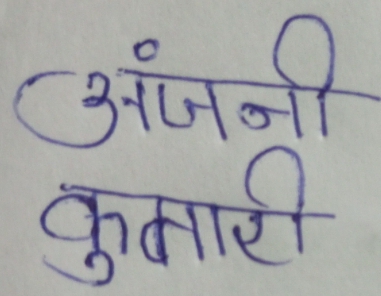 अंजनी
कुमारी